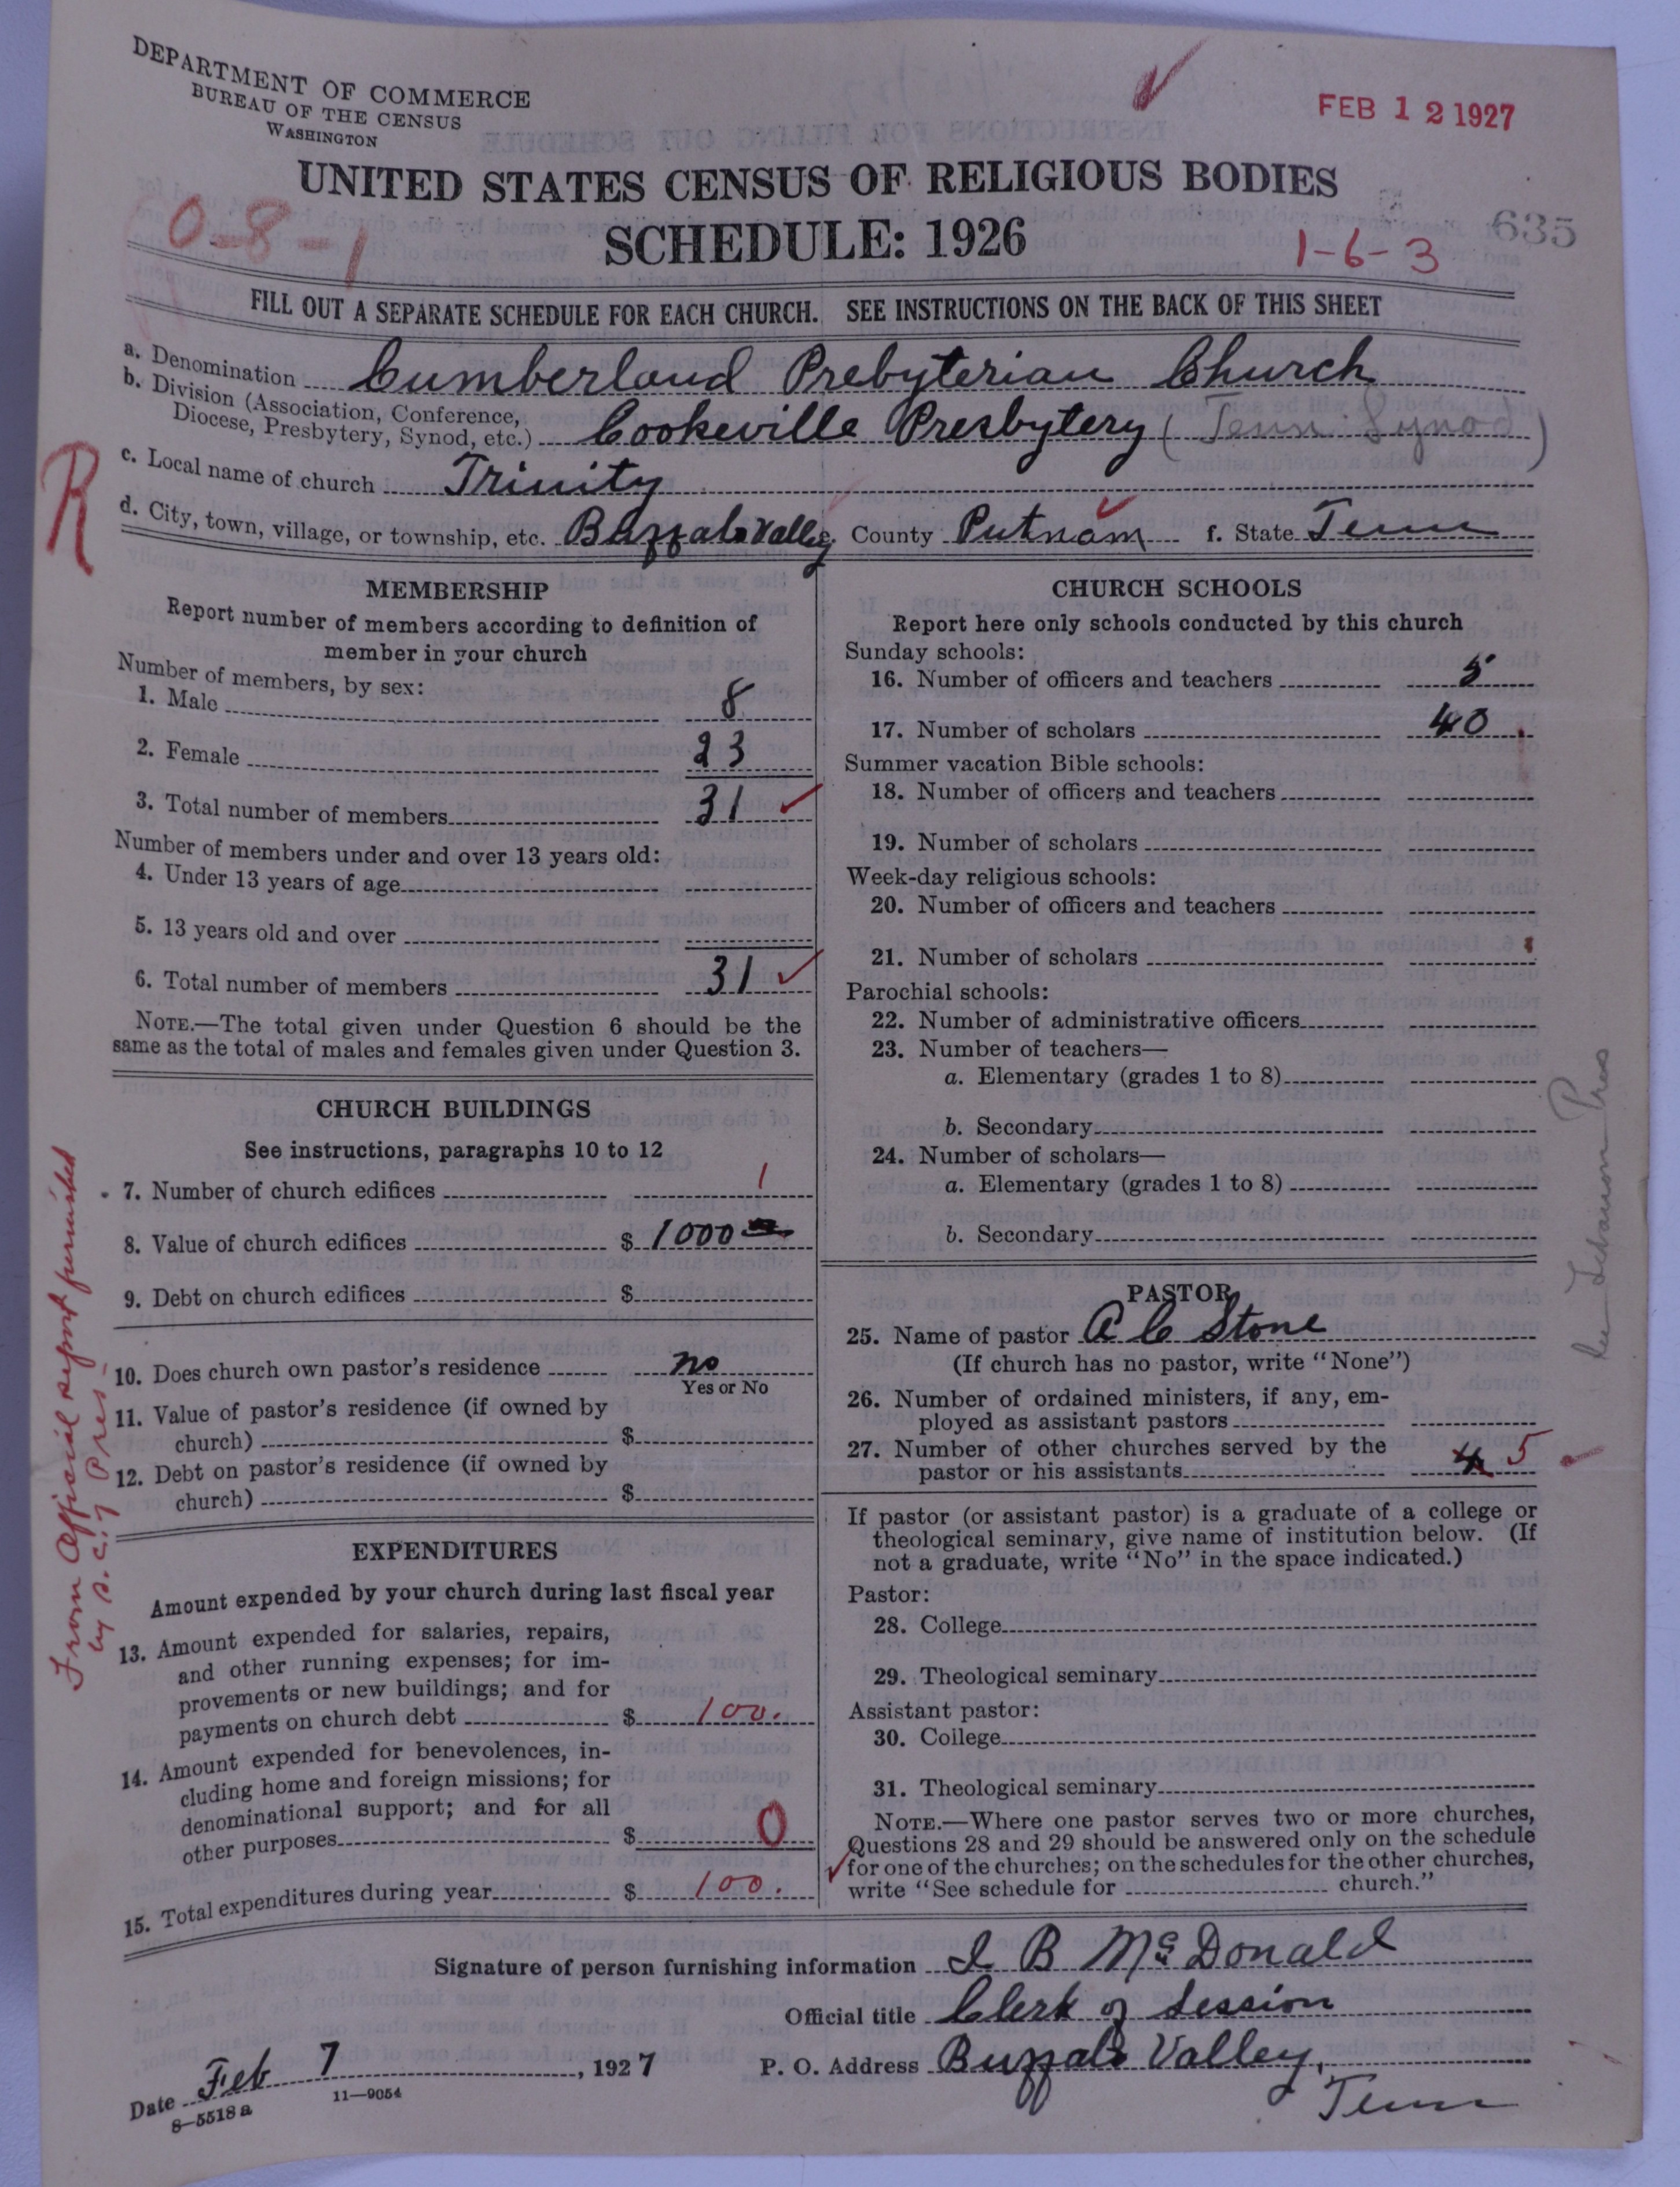 DEPARTMENT OF COMMERCE
BUREAU OF THE CENSUS
WASHINGTON
FEB 12 1927
UNITED STATES CENSUS OF RELIGIOUS BODIES
SCHEDULE: 1926
0-8-1
1-6-3
635
FILL OUT A SEPARATE SCHEDULE FOR EACH CHURCH. SEE INSTRUCTIONS ON THE BACK OF THIS SHEET
a. Denomination Cumberland Prebyterian Church
b. Division (Association, Conference,
Diocese, Presbytery, Synod, etc.) Cookeville Presbytery (Tenn. Synod)
R
c. Local name of church Trinity
d. City, town, village, or township, etc. Buffalo Valley e. County Putnam f. State Tenn
MEMBERSHIP
Report number of members according to definition of
member in your church
Number of members, by sex:
1. Male 8
2. Female 23
3. Total number of members 31
Number of members under and over 13 years old:
4. Under 13 years of age
5. 13 years old and over
6. Total number of members 31
NOTE.—The total given under Question 6 should be the
same as the total of males and females given under Question 3.
CHURCH BUILDINGS
See instructions, paragraphs 10 to 12
7. Number of church edifices 1
8. Value of church edifices $ 1000
9. Debt on church edifices $
10. Does church own pastor's residence no
Yes or No
11. Value of pastor's residence (if owned by
church) $
12. Debt on pastor's residence (if owned by
church) $
EXPENDITURES
Amount expended by your church during last fiscal year
13. Amount expended for salaries, repairs,
and other running expenses; for im-
provements or new buildings; and for
payments on church debt $ 100.
14. Amount expended for benevolences, in-
cluding home and foreign missions; for
denominational support; and for all
other purposes $ 0
15. Total expenditures during year $ 100.
From Official report furnished
by S. C. of Pres-
CHURCH SCHOOLS
Report here only schools conducted by this church
Sunday schools:
16. Number of officers and teachers 5
17. Number of scholars 40
Summer vacation Bible schools:
18. Number of officers and teachers
19. Number of scholars
Week-day religious schools:
20. Number of officers and teachers
21. Number of scholars
Parochial schools:
22. Number of administrative officers
23. Number of teachers—
a. Elementary (grades 1 to 8)
b. Secondary
24. Number of scholars—
a. Elementary (grades 1 to 8)
b. Secondary
PASTOR
25. Name of pastor A C Stone
(If church has no pastor, write "None")
26. Number of ordained ministers, if any, em-
ployed as assistant pastors
27. Number of other churches served by the
pastor or his assistants 4 5
If pastor (or assistant pastor) is a graduate of a college or
theological seminary, give name of institution below. (If
not a graduate, write "No" in the space indicated.)
Pastor:
28. College
29. Theological seminary
Assistant pastor:
30. College
31. Theological seminary
NOTE.—Where one pastor serves two or more churches,
Questions 28 and 29 should be answered only on the schedule
for one of the churches; on the schedules for the other churches,
write "See schedule for church."
Lebanon Pres
Signature of person furnishing information I B McDonald
Official title Clerk of Session
Date Feb 7, 1927 P. O. Address Buffalo Valley,
Tenn
8—5518 a 11—9054